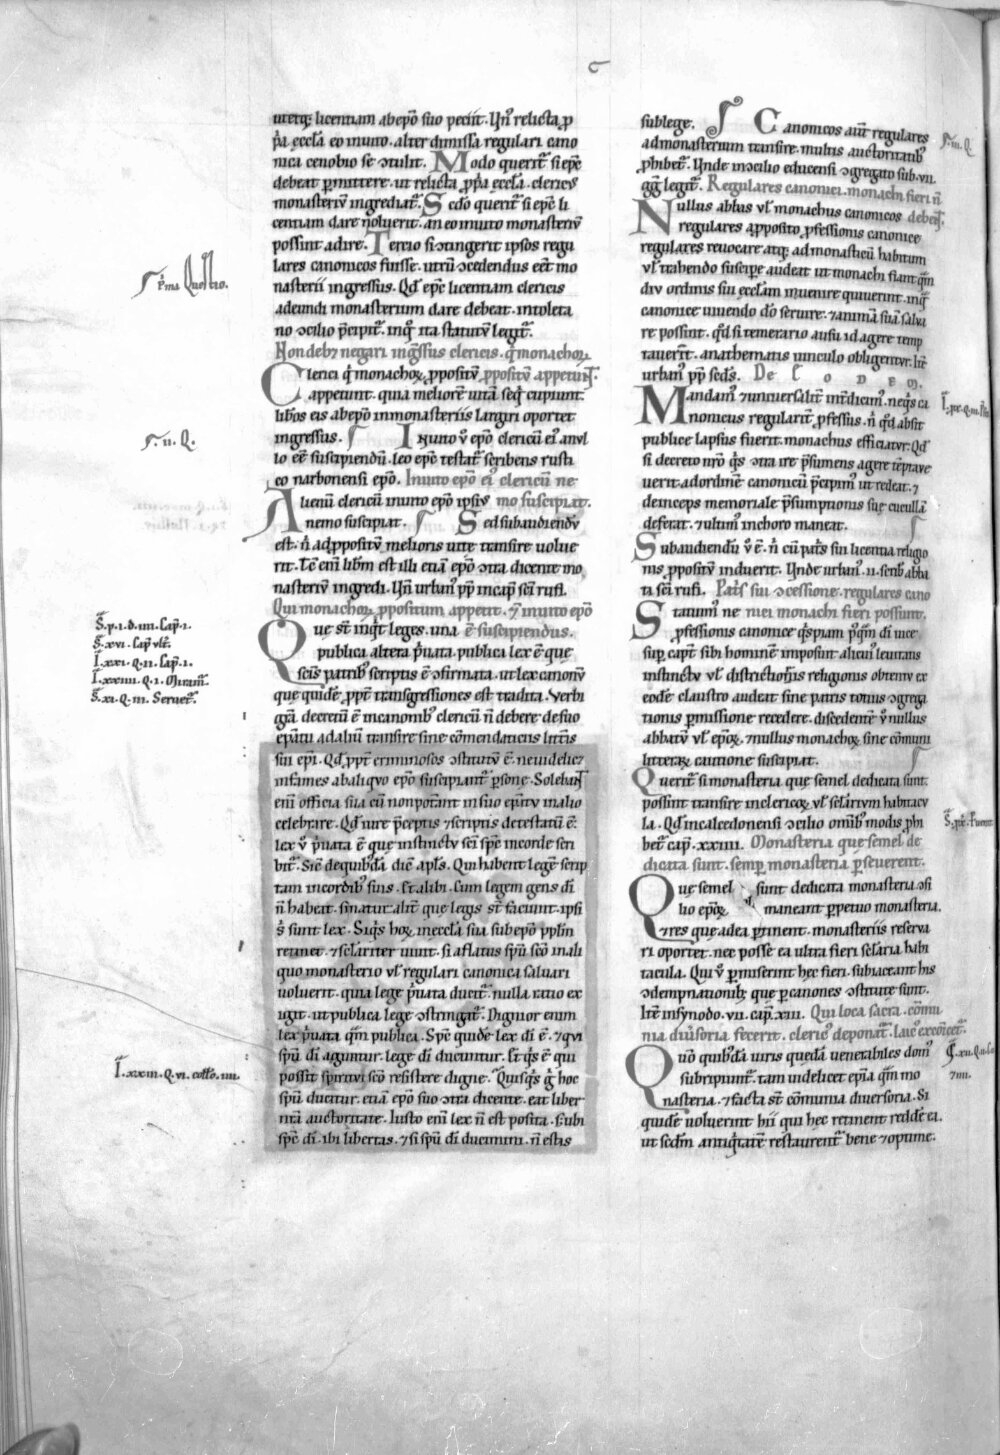 uterq; licentiam abepō suo peciit. Un᷒ relicta ꝓ
p̄a eccl̄a eo inuito. alter dimissa regulari cano
nica cenobio se ↄtulit. Modo querit᷒ si epc̄
debeat ꝑmittere. ut relicta ꝓp̄a eccl̄a. clericus
monasteriū ingrediat᷒. Scd̄o querit᷒ si epc̄ li
centiam dare noluerit. an eo inuito monasteriū
possint adire. Tercio si ↄtingerit ipsos regu
lares canonicos fuisse. utrū ↄcedendus eēt mo
nasterii ingressus. Qd̄ epc̄ licentiam clericis
adeundi monasterium dare debeat. intoleta
no ↄcilio p̄cipit᷒. inq᷒ ita statutū legit᷒.
Non debꝫ negari ing̃ssus clericis. q̄ monachoꝝ
Clerici q̄ monachoꝝ ꝓpositū appetunt.
appetunt. quia meliorē uitā seq̄ cupiunt.
lib̄os eis abepō inmonasteriis largiri oportet
ingressus. Inuito ū epō clericū ei᷒ nul
lo eē suscipiendū. leo epc̄ testat᷒ scribens rusti
co narbonensi epō. Inuito epō ei᷒ clericū ne
Alienū clericū inuito epō ipsi᷒ mo suscipiat.
nemo suscipiat. Sed subaudiendū
est. n̄ ad ꝓpositū melioris uite transire uolue
rit. Tc̄ eni lib̄m est illi etiā epō ↄtra dicente mo
nasteriū ingredi. Un̄ urban᷒ pp̄ incap̄ sc̄i rufi.
Qui monachoꝝ ꝓpositum appetit. ⁊ inuito epō
Que st̄ inq̄t leges. una ē suscipiendus.
publica altera p̄uata. publica lex ē que
sc̄is patrib᷒ scriptis ē ↄfirmata. ut lex canonū
que quidē ꝓpt̄ transgressiones est tradita. Verbi
gr̄a. decretū ē incanonib᷒ clericū n̄ debere desuo
ep̄atu adaliū transire sine cōmendaticiis litt̄is
sui epi. Qd̄ ꝓpt̄ criminosos ↄstitutū ē. neuidelicꝫ
infames abaliquo epō suscipiant᷒ ꝑsone. Solebant
eni officia sua cū nonpotant insuo ep̄atu inalio
celebrare. Qd̄ iure p̄ceptis ⁊scriptis detestatū ē.
lex ū p̄uata ē que instinctu sc̄i sp̄c incorde scri
bit᷒. Sic̄ dequib᷒dā dic̄ apl̄s. Qui habent legē scrip
tam incordib᷒ suis. Et alibi. Cum legem gens di
n̄ habeat. sinatur᷒alit̄ que legis st̄ faciunt. ipsi
s̄ sunt lex. Siq̄s hoꝝ ineccl̄a sua subepō ppl̄m
retinet. ⁊sclariter uiuit. si aflatus spū sc̄o inali
quo monasterio ul̄ regulari canonica saluari
uoluerit. quia lege p̄uata ducit᷒. nulla ratio ex
igit. ut publica lege ↄstringat᷒. Dignior enim
lex p̄uata q̄m publica. Spc̄ quidē lex di ē. ⁊qui
spū di aguntur. lege di ducuntur. Et q̄s ē qui
possit spiritui sc̄o resistere digne. Quisq̄s ḡ hoc
spū ducitur. etiā epō suo ↄtra dicente. eat liber
nr̄a auctoritate. Iusto eni lex n̄ est posita. s; ubi
spc̄ di. ibi libertas. ⁊si spū di ducimini. n̄ estis
sublege. Canonicos aut᷒ regulares
admonasterium transire. multis auctoritatib᷒
ꝓhibet᷒. Unde inↄcilio educensi ↄgregato sub .vii.
gg̃ legit᷒. Regulares canonici. monachi fieri n̄
Nullus abbas ul̄ monachus canonicos debent.
regulares aꝓposito ꝓfessionis canonice
regulares reuocare atq; ad monasticū habitum
ul̄ trahendo suscipe audeat ut monachi fiant q̄m
diu ordinis sui eccl̄am inuenire quiuerint. inq᷒
canonice uiuendo do seruire. ⁊animā suā salua
re possint. qd̄ si temerario ausu id agere temp
tauerit᷒. anathematis uinculo obligentur. Itē
urban᷒ pp̄ scds̄. De eodem.
Mandam᷒ ⁊uniuersalit̄ intdicim᷒. neq̄s ca
nonicus regularit̄ ꝓfessus. n̄ qd̄ absit
publice lapsus fuerit. monachus efficiatur. Qd̄
si decreto nr̄o q̄s ↄtra ire p̄sumens agere tēptaue
uerit. adordinē canonicū p̄cipim᷒ ut redeat. ⁊
deinceps memoriale p̄sumptionis sue cucullā
deferat. ⁊ultim᷒ inchoro maneat.
Subaudiendū ū ē. n̄ cū patris sui licentia religio
nis ꝓpositū induerit. Unde urban᷒ .ii. scrib᷒ abba
ti sc̄i rufi. Patris sui ↄcessione. regulares cano
Statuim᷒ ne nici monachi fieri possunt.
ꝓfessionis canonice q̄spiam pq̄m di uice
sup̄ capt̄ sibi hominē imposuit alicui᷒ leuitatis
instinctu ul̄ districtioris religionis obtentu ex
eodē claustro audeat sine patris toti᷒ ↄgrega
tionis ꝑmissione recedere. discedentē ū nullus
abbatū ul̄ epoꝝ. ⁊nullus monachoꝝ sine cōmuni
litteraꝝ cautione suscipiat.
Querit᷒ si monasteria que semel dedicata sunt.
possint transire inclericoꝝ ul̄ sclarium habitacu
la. Qd̄ incalcedonensi ↄcilio omib᷒ modis ꝓhi
bet᷒ cap̄. xxiiii. Monasteria que semel de
dicata sunt. semp̄ monasteria ꝑseuerent.
Que semel sunt dedicata monasteria ↄsi
lio epoꝝ maneant ꝑpetuo monasteria.
⁊res que adea ꝑtinent. monasteriis reserua
ri oportet. nec posse ea ultra fieri sclaria habi
tacula. Qui ū ꝑmiserint hec fieri. subiaceant his
ↄdempnationib; que ꝑcanones ↄstitute sunt.
Itē insynodo .vii. cap̄. xiii. Qui loca sacra. cōmu
nia diu᷒soria fecerit. cleric᷒ deponat᷒. laic᷒ excōicet᷒.
Quō quib᷒dā uiris quedā uenerabiles dom᷒
subripiunt᷒. tam uidelicet ep̄ia q̄m mo
nasteria. ⁊facta st̄ cōmunia diuersoria. Si
quidē uoluerint hii qui hec retinent reddē ea.
ut scdm̄ antiq̄tatē restaurent᷒ bene ⁊optime.
P̄ma Questio.
.ii. Q.
S̄. p. i. d. iii. Cap̄. i.
S̄. xvi. Cap̄ ult̄.
I. xxi. Q. ii. Cap̄. i.
I. xxiiii. Q. i.
S̄. xi. Q. iii.
I. xxiii. Q. vi.
.iii. Q.